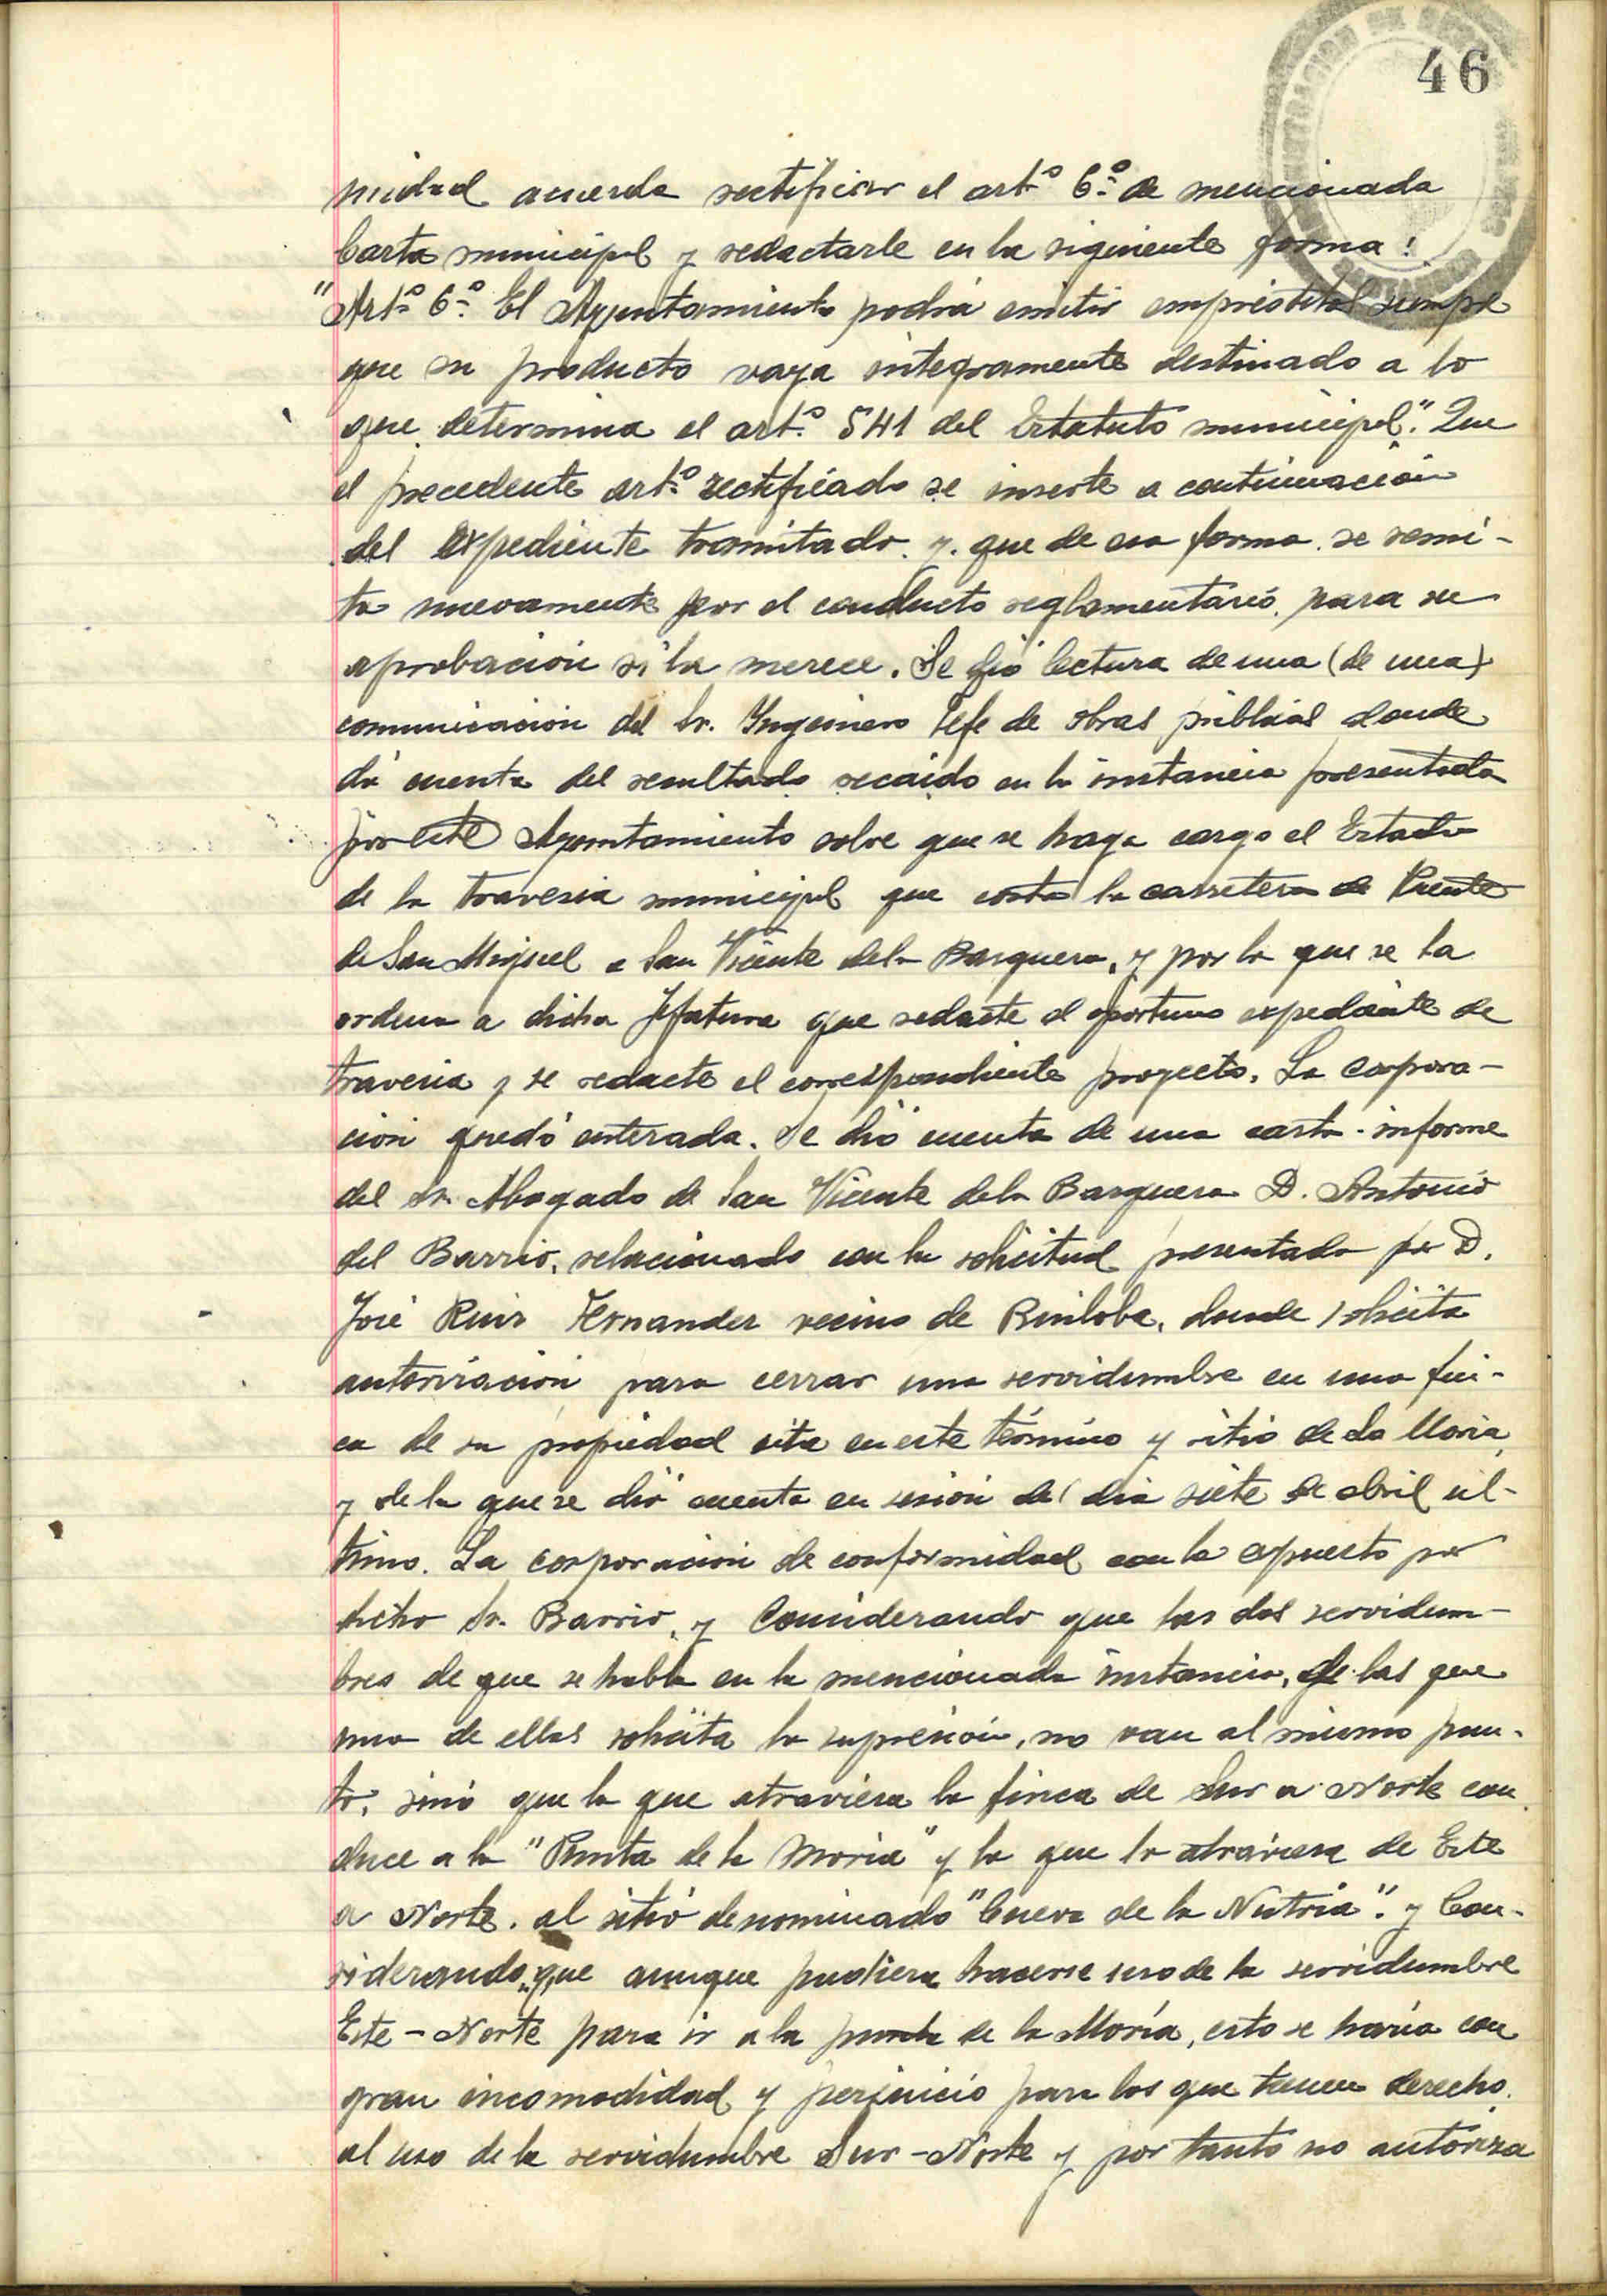 46
nidad acuerda rectificar el artº 6º de mencionada
Carta municipal y redactarle en la siguiente forma:
"Artº 6º El Ayuntamiento podrá emitir empréstitos siempre
que su producto vaya integramente destinado a lo
que determina el artº 541 del Estatuto municipal". Que
el precedente artº rectificado se inserte a continuación
del expediente tramitado y que de esa forma se remi-
ta nuevamente por el conducto reglamentario para su
aprobación si la merece. Se dió lectura de una (de una)
comunicación del Sr. Ingeniero Jefe de obras públicas donde
dá cuenta del resultado recaido en la instancia presentada
por este Ayuntamiento sobre que se haga cargo el Estado
de la travesia municipal que corta la carretera de Puente
de San Miguel a San Vicente de la Barquera, y por la que se la
ordena a dicha Jefatura que redacte el oportuno expediente de
travesia y se redacte el correspondiente proyecto. La Corpora-
ción quedó enterada. Se dió cuenta de una carta-informe
del Sr. Abogado de San Vicente de la Barquera D. Antonio
del Barrio, relacionado con la solicitud presentada por D.
José Ruiz Fernandez vecino de Ruiloba, donde solicita
autorización para cerrar una servidumbre en una fin-
ca de su propiedad sita en este término y sitio de La Moria,
y de la que se dió cuenta en sesión del dia siete de abril úl-
timo. La corporación de conformidad con lo expuesto por
dicho Sr. Barrio, y Considerando que las dos servidum-
bres de que se habla en la mencionada instancia, de las que
una de ellas solicita la supresión, no van al mismo pun-
to, sinó que la que atraviesa la finca de Sur a Norte con
duce a la "Punta de la Moria" y la que la atraviesa de Este
a Norte, al sitio denominado "Cueva de la Nutria". y Con-
siderando, que aunque pudiera hacerse uso de la servidumbre
Este-Norte para ir a la punta de la Moría, esto se haría con
gran incomodidad y perjuicio para los que tienen derecho
al uso de la servidumbre Sur-Norte y por tanto no autoriza